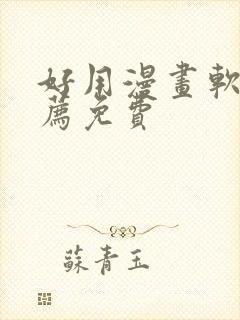 好用漫畫軟
薦免費
蘇青玉